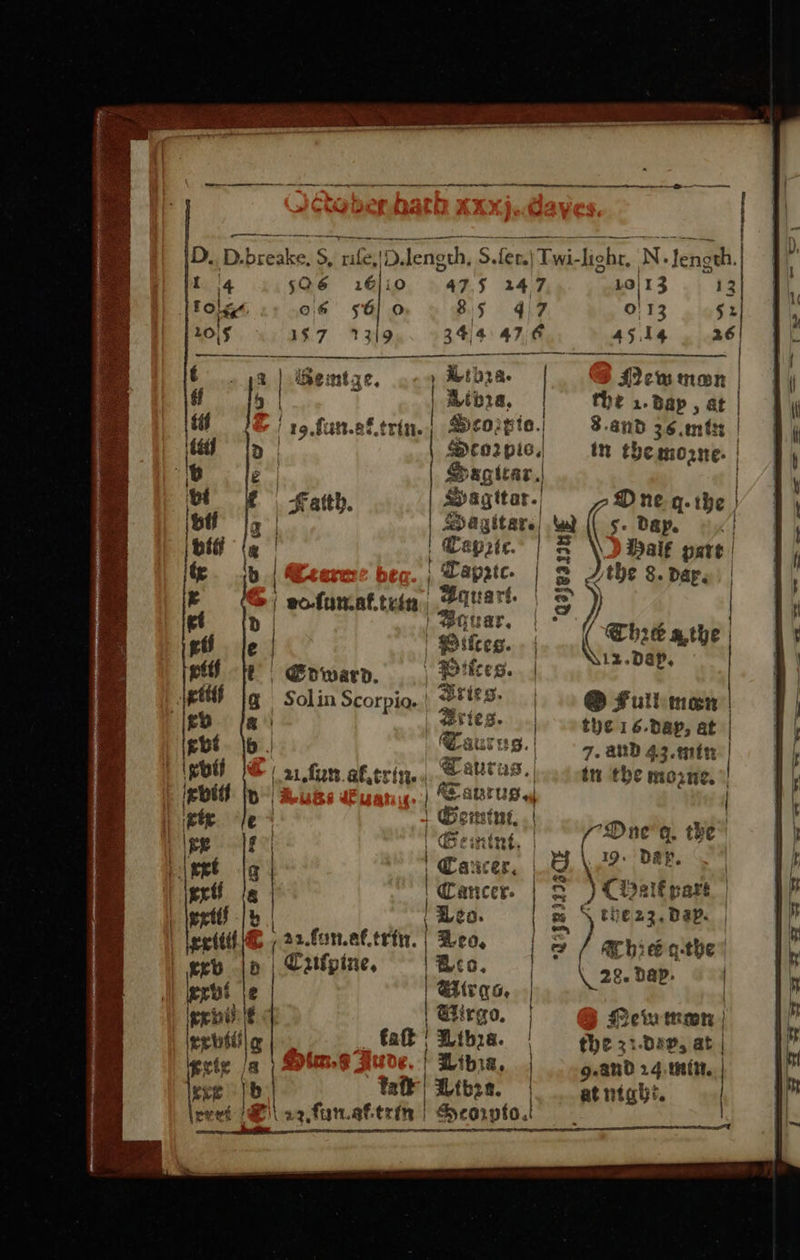 October hath xxxj. dayes.
D. D.breake. S. rise. D.length. S.set. Twi-light. N.length.
1 4 50 6 16 10 47 5 24 7 10 13 13
10 5 0 6 56 0 8 5 4 7 0 13 52
20 5 15 7 13 9 34 4 47 6 45 14 26
i a Remige. Libra.
ii b Libra.
iii C 19.sun.af.trin. Scorpio.
iiii D Scorpio.
v e Sagittar.
vi f Faith. Sagittar.
vii g Sagitare.
viii a Capric.
ix b Tearme beg. Capric.
x C 20.sun.af.trin. Aquari.
xi D Aquar.
xii e Pisces.
xiii f Edward. Pisces.
xiiii g Sol in Scorpio. Aries.
xv a Aries.
xvi b Taurus.
xvii C 21.sun.af.trin. Taurus.
xviii D Luks Euang. Taurus.
xix e Gemini.
xx f Gemini.
xxi g Cancer.
xxii a Cancer.
xxiii b Leo.
xxiiii C 22.sun.af.trin. Leo.
xxv D Crispine. Leo.
xxvi e Virgo.
xxvii f Virgo.
xxviii g fast Libra.
xxix a Sim. & Jude. Libra.
xxx b Libra.
xxxi C 23.sun.af.trin Scorpio.
New moon
the 1. day, at
8. and 36. min
in the morne.
One q. the
5. day.
Half part
the 8. day.
Three q. the
12. day.
Full moon
the 16. day, at
7. and 43. min
in the morne.
One q. the
19. day.
Half part
the 23. day.
Three q. the
28. day.
New moon
the 31. day, at
9. and 24. min.
at night.